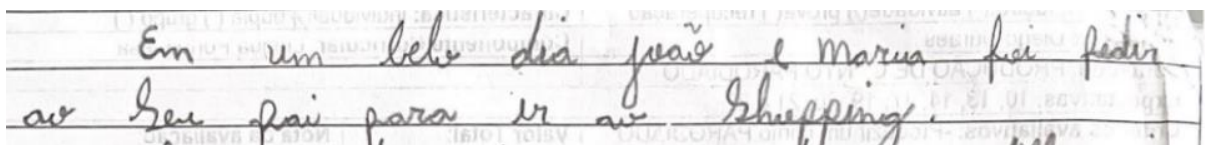 Em um belo dia joão e Maria foi pedir
ao Seu pai para ir ao Shopping.